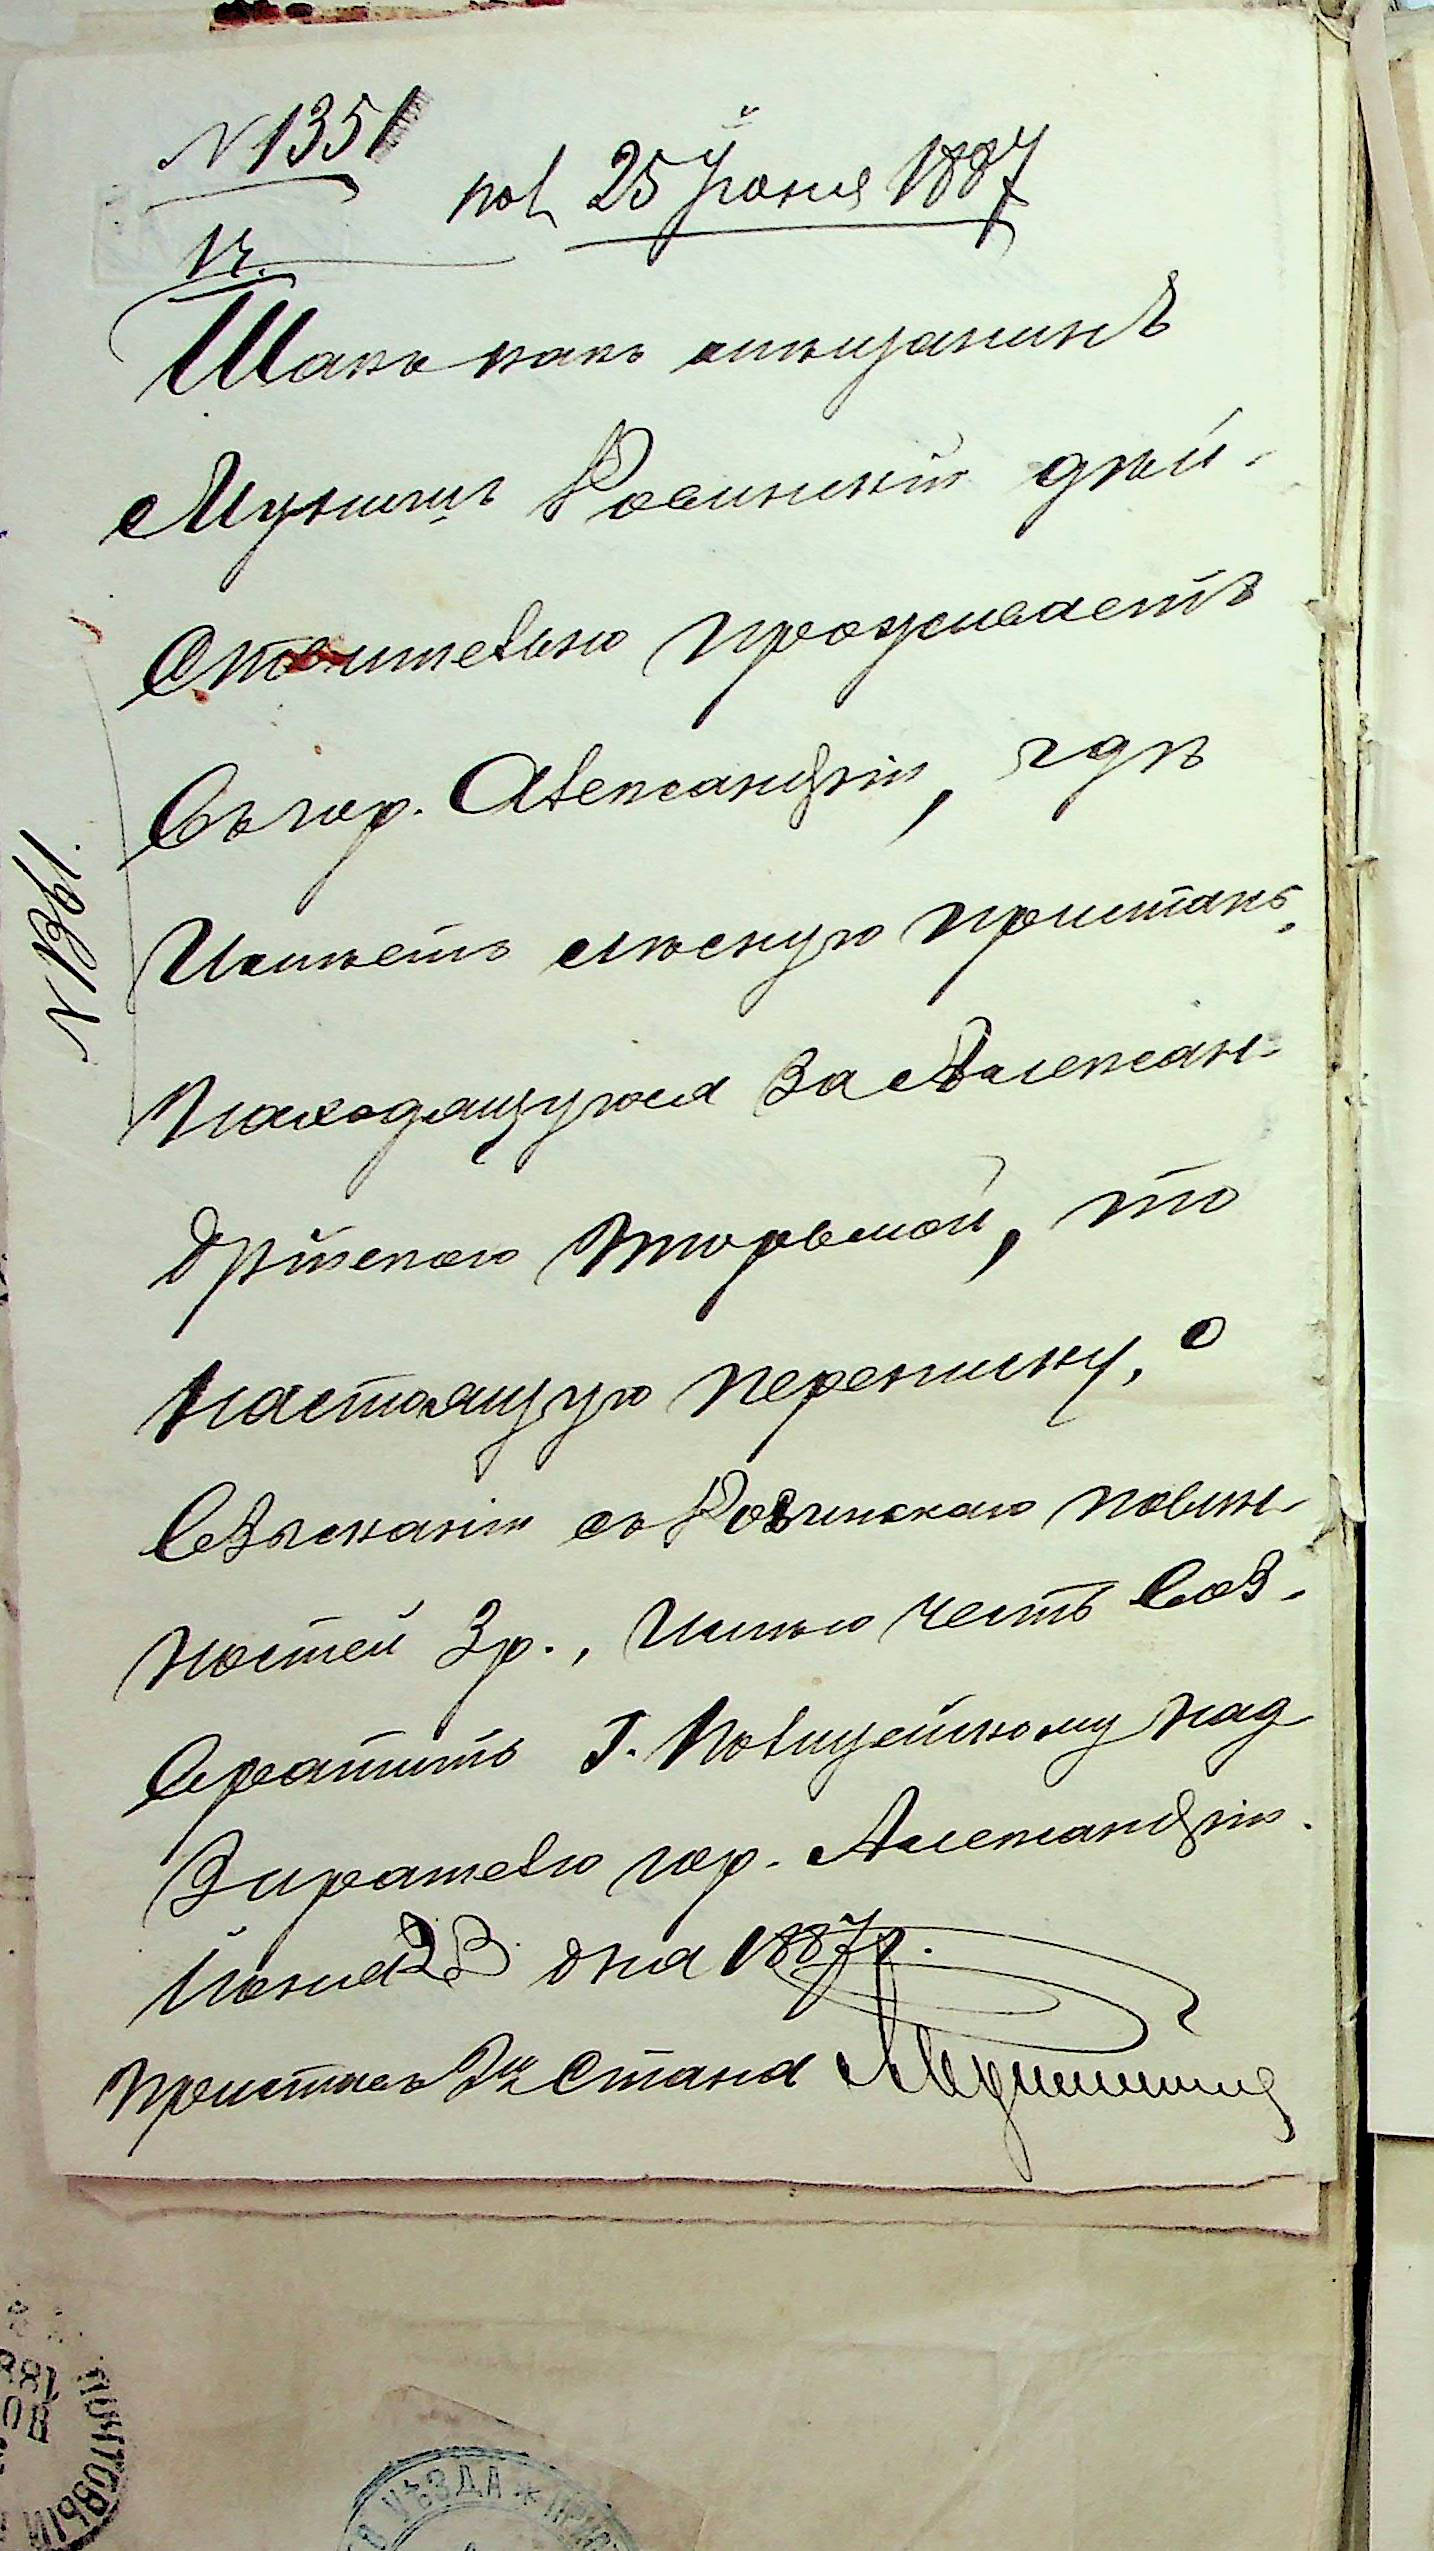 N 1351
пол 25 Іюня 1887
Такъ какъ мѣщанинъ
Мунишъ Ровинскій дѣй-
ствительно проживаетъ
въ гор. Александріи, гдѣ
имѣетъ лѣсную пристань,
находящуюся за Алексан-
дрійскою тюрьмой, то
настоящую переписку, о
взысканіи съ Ровинскаго повин-
ностей 3 р., имѣю честь воз-
вратить Г. Полицейскому Над
зирателю гор. Александріи.
Іюня 23 дня 1887 г.
Приставъ 2го Стана
N 1361.
УѢЗДА * ПРИСТ
ПОЧТОВЫЙ
188